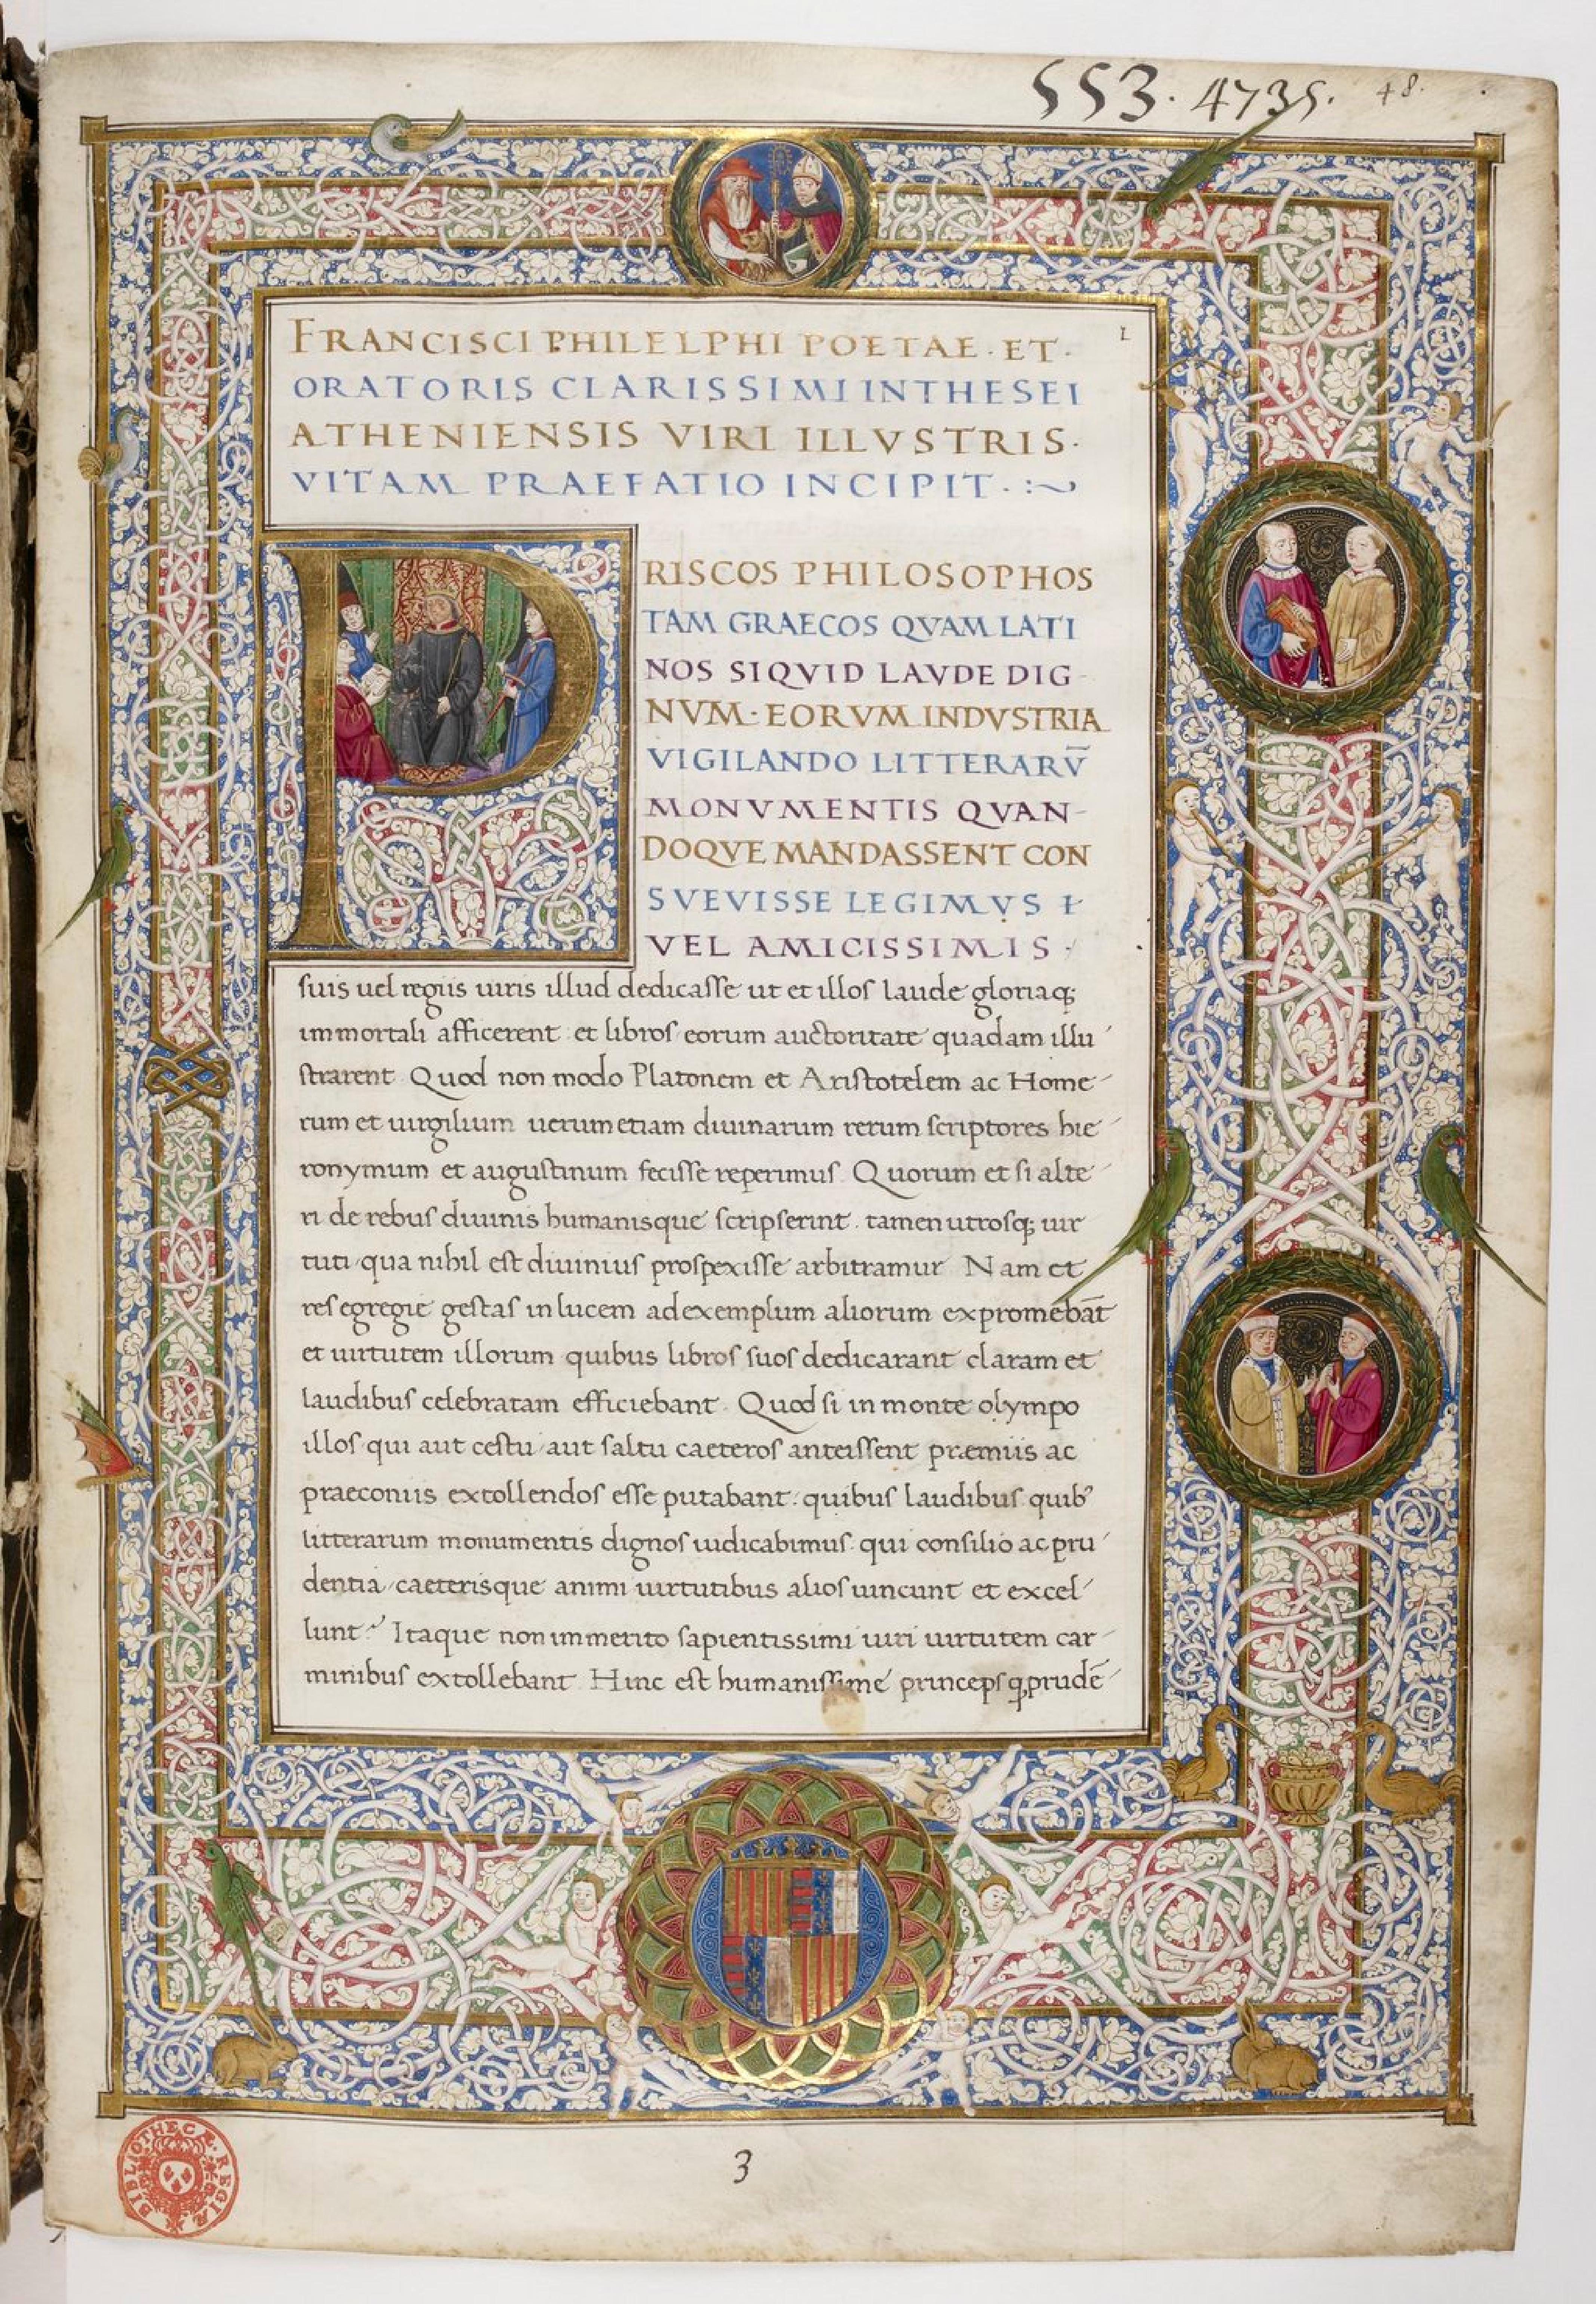 553. 4735. 48.
1
FRANCISCI PHILELPHI POETAE · ET ·
ORATORIS CLARISSIMI IN THESEI
ATHENIENSIS VIRI ILLVSTRIS ·
VITAM PRAEFATIO INCIPIT · :~
PRISCOS PHILOSOPHOS
TAM GRAECOS QVAM LATI
NOS SIQVID LAVDE DIG-
NVM · EORVM INDVSTRIA
VIGILANDO LITTERARV̄
MONVMENTIS QVAN-
DOQVE MANDASSENT CON
SVEVISSE LEGIMVS
VEL AMICISSIMIS ·
suis uel regiis uiris illud dedicasse ut et illos laude gloriaq;
immortali afficerent et libros eorum auctoritate quadam illu
strarent. Quod non modo Platonem et Aristotelem ac Home-
rum et uirgilium uerum etiam diuinarum rerum scriptores hie
ronymum et augustinum fecisse reperimus. Quorum et si alte
ri de rebus diuinis humanisque scripserint. tamen utrosq; uir
tuti qua nihil est diuinius prospexisse arbitramur. Nam et
res egregie gestas in lucem ad exemplum aliorum expromebāt
et uirtutem illorum quibus libros suos dedicarant claram et
laudibus celebratam efficiebant. Quod si in monte olympo
illos qui aut cestu / aut saltu caeteros anteissent præmiis ac
praeconiis extollendos esse putabant: quibus laudibus quib'
litterarum monumentis dignos iudicabimus: qui consilio ac pru
dentia / caeterisque animi uirtutibus alios uincunt et excel
lunt? Itaque non immerito sapientissimi uiri uirtutem car-
minibus extollebant. Hinc est humanissime princeps ꝙ prudē
3
BIBLIOTHECÆ REGIÆ